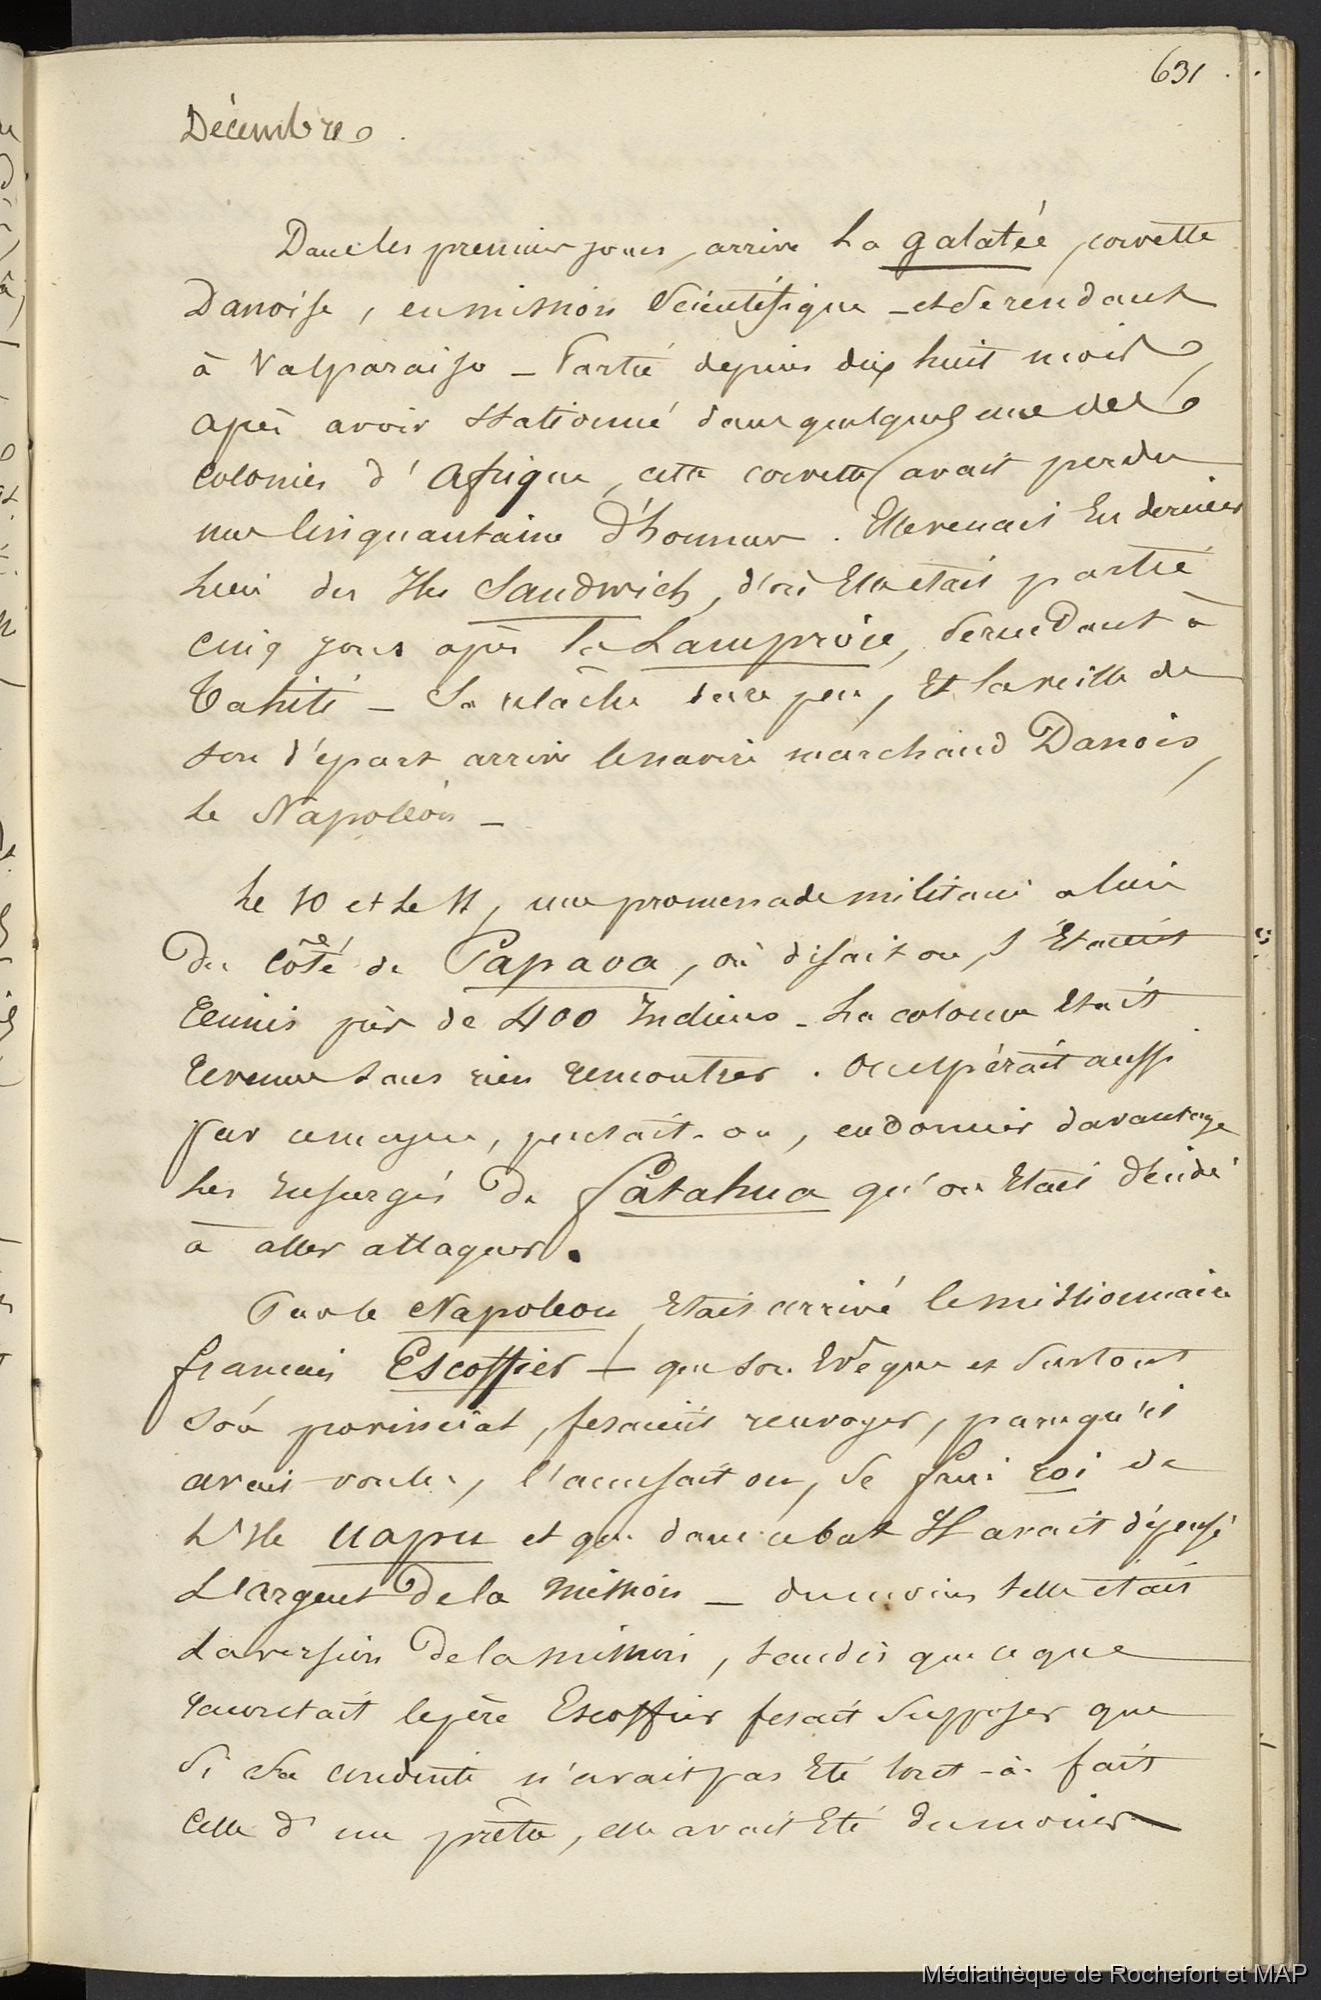 631
Décembre
Dans les premiers jours, arrive La galatée, corvette
Danoise, en mission Scientifique - et se rendant
à Valparaiso - Partie depuis dix huit mois
après avoir stationné dans quelques une des
colonies d'Afrique, cette corvette avait perdu
une cinquantaine d'hommes. Elle venait En dernier
lieu des Iles Sandwich, d'où Elle était partie
cinq jours après la Lamproie, se rendant à
Tahiti - Sa relâche dura peu, Et la veille de
son départ arriva le navire marchand Danois,
le Napoléon -
Le 10 et le 11, une promenade militaire a lieu
du côté de Papava, où disait on, s'Etaient
réunis près de 400 Indiens - La colonne Etait
revenue sans rien rencontrer. On espérait aussi
par ce moyen, pensait-on, endormir davantage
les Insurgés de fatahua qu'on Etait décidé
à aller attaquer.
Par le Napoléon Etait arrivé le missionnaire
français Escoffier - que son Evêque et surtout
son provincial, fesaient renvoyer, parcequ'il
avait voulu, l'accusait on, se faire roi de
L'Ile Uapu et que dans ce but Il avait dépensé
L'argent de la mission - du moins telle était
La version de la mission, tandis que ce que
racontait le père Escoffier fesait supposer que
si sa conduite n'avait pas Eté tout-à-fait
celle d'un prêtre, elle avait Eté du moins
Médiathèque de Rochefort et MAP